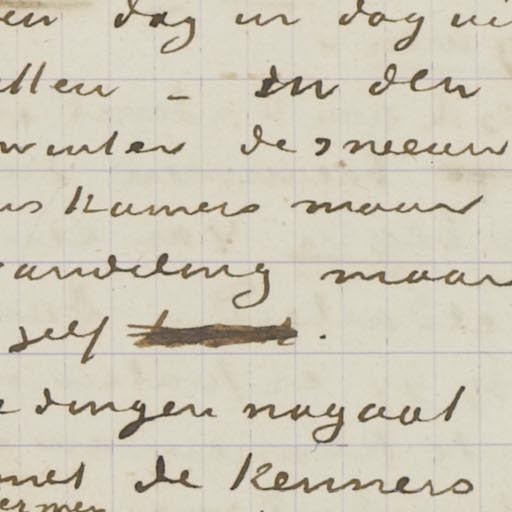 en dag in dag ui
ellen – in den
winter de sneeuw
ns kamers maar
andeling maar
zelf .
e dingen nagaat
met de kenners
ermen